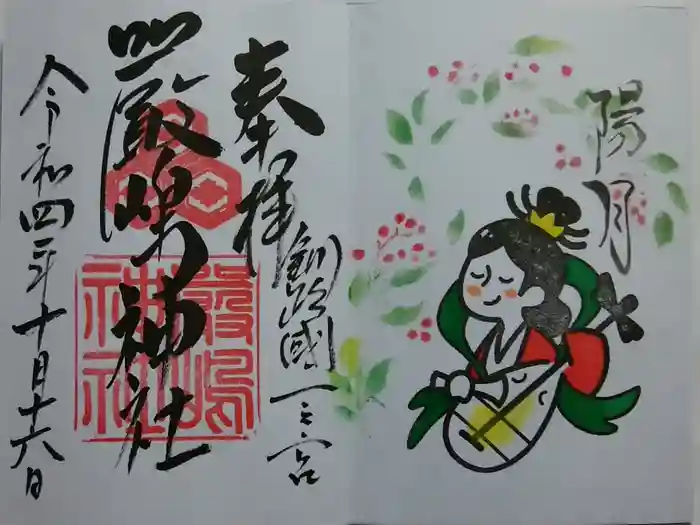 陽月
奉拝
釧路國一之宮
厳嶋神社
厳嶋神社
令和四年十月十六日